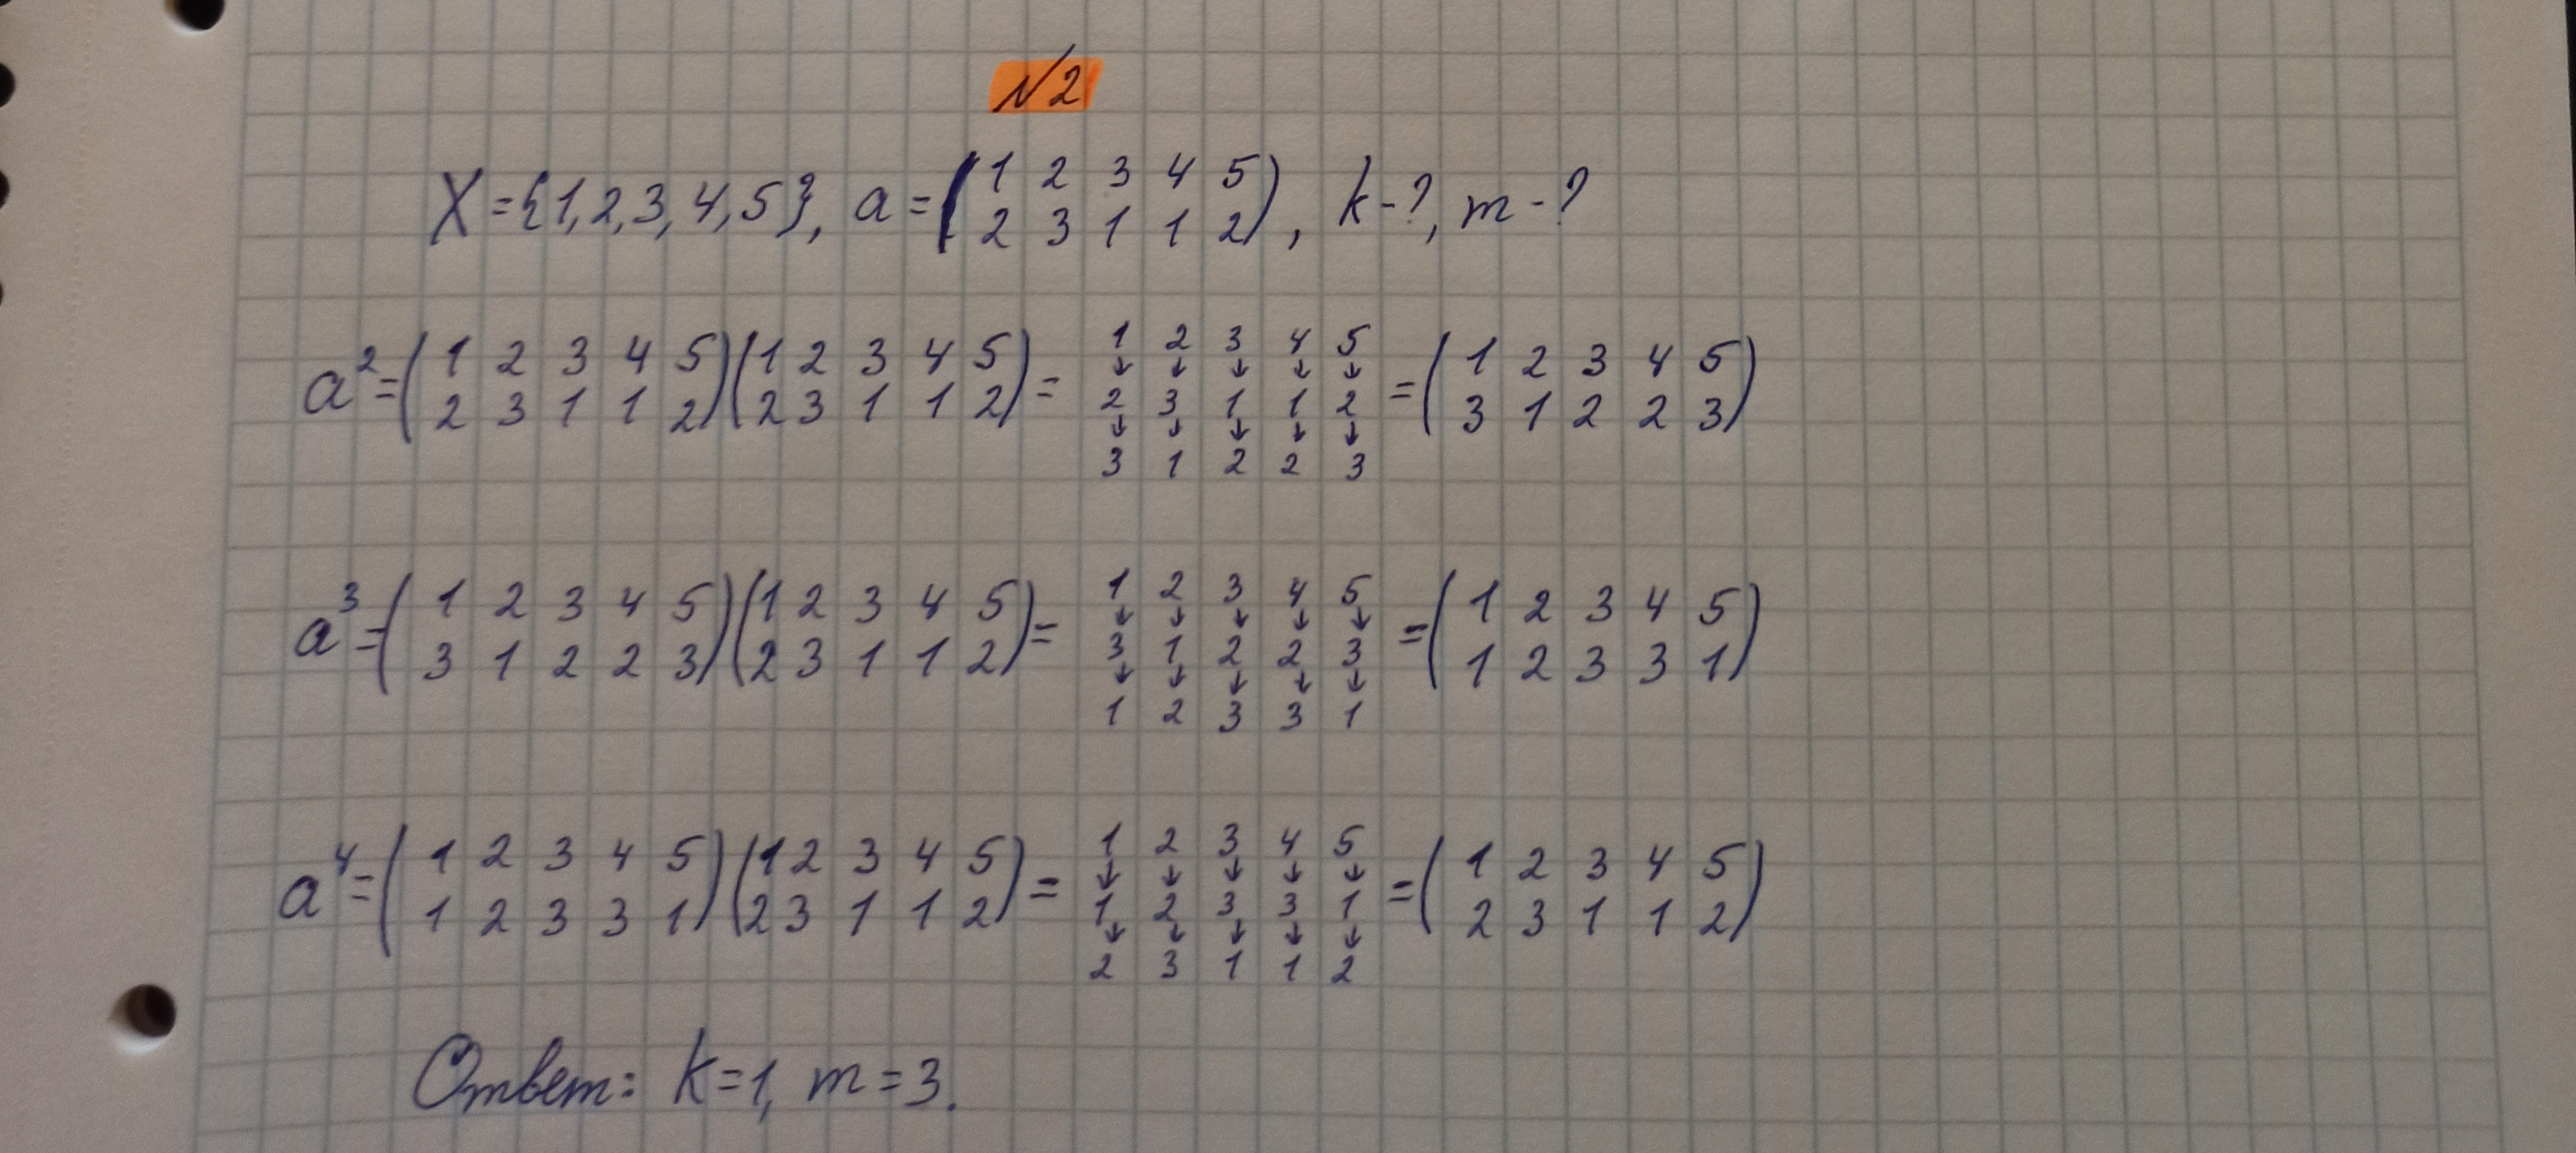 №2
X={1,2,3,4,5}, a=(1 2 3 4 5
2 3 1 1 2), k-?, m-?
a²=(1 2 3 4 5
2 3 1 1 2)(1 2 3 4 5
2 3 1 1 2)= 1 2 3 4 5
↓ ↓ ↓ ↓ ↓
2 3 1 1 2
↓ ↓ ↓ ↓ ↓
3 1 2 2 3 =(1 2 3 4 5
3 1 2 2 3)
a³=(1 2 3 4 5
3 1 2 2 3)(1 2 3 4 5
2 3 1 1 2)= 1 2 3 4 5
↓ ↓ ↓ ↓ ↓
3 1 2 2 3
↓ ↓ ↓ ↓ ↓
1 2 3 3 1 =(1 2 3 4 5
1 2 3 3 1)
a⁴=(1 2 3 4 5
1 2 3 3 1)(1 2 3 4 5
2 3 1 1 2)= 1 2 3 4 5
↓ ↓ ↓ ↓ ↓
1 2 3 3 1
↓ ↓ ↓ ↓ ↓
2 3 1 1 2 =(1 2 3 4 5
2 3 1 1 2)
Ответ: k=1, m=3.